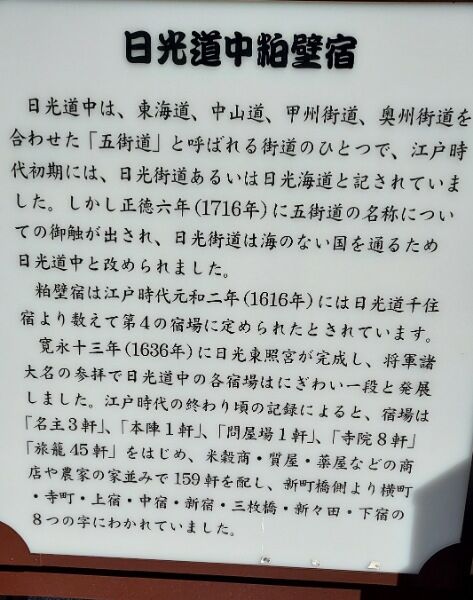 日光道中粕壁宿
日光道中は、東海道、中山道、甲州街道、奥州街道を
合わせた「五街道」と呼ばれる街道のひとつで、江戸時
代初期には、日光街道あるいは日光海道と記されていま
した。しかし正徳六年(1716年)に五街道の名称につい
ての御触が出され、日光街道は海のない国を通るため
日光道中と改められました。
粕壁宿は江戸時代元和二年(1616年)には日光道千住
宿より数えて第4の宿場に定められたとされています。
寛永十三年(1636年)に日光東照宮が完成し、将軍諸
大名の参拝で日光道中の各宿場はにぎわい一段と発展
しました。江戸時代の終わり頃の記録によると、宿場は
「名主3軒」、「本陣1軒」、「問屋場1軒」、「寺院8軒」
「旅籠45軒」をはじめ、米穀商・質屋・薬屋などの商
店や農家の家並みで159軒を配し、新町橋側より横町
・寺町・上宿・中宿・新宿・三枚橋・新々田・下宿の
8つの字にわかれていました。